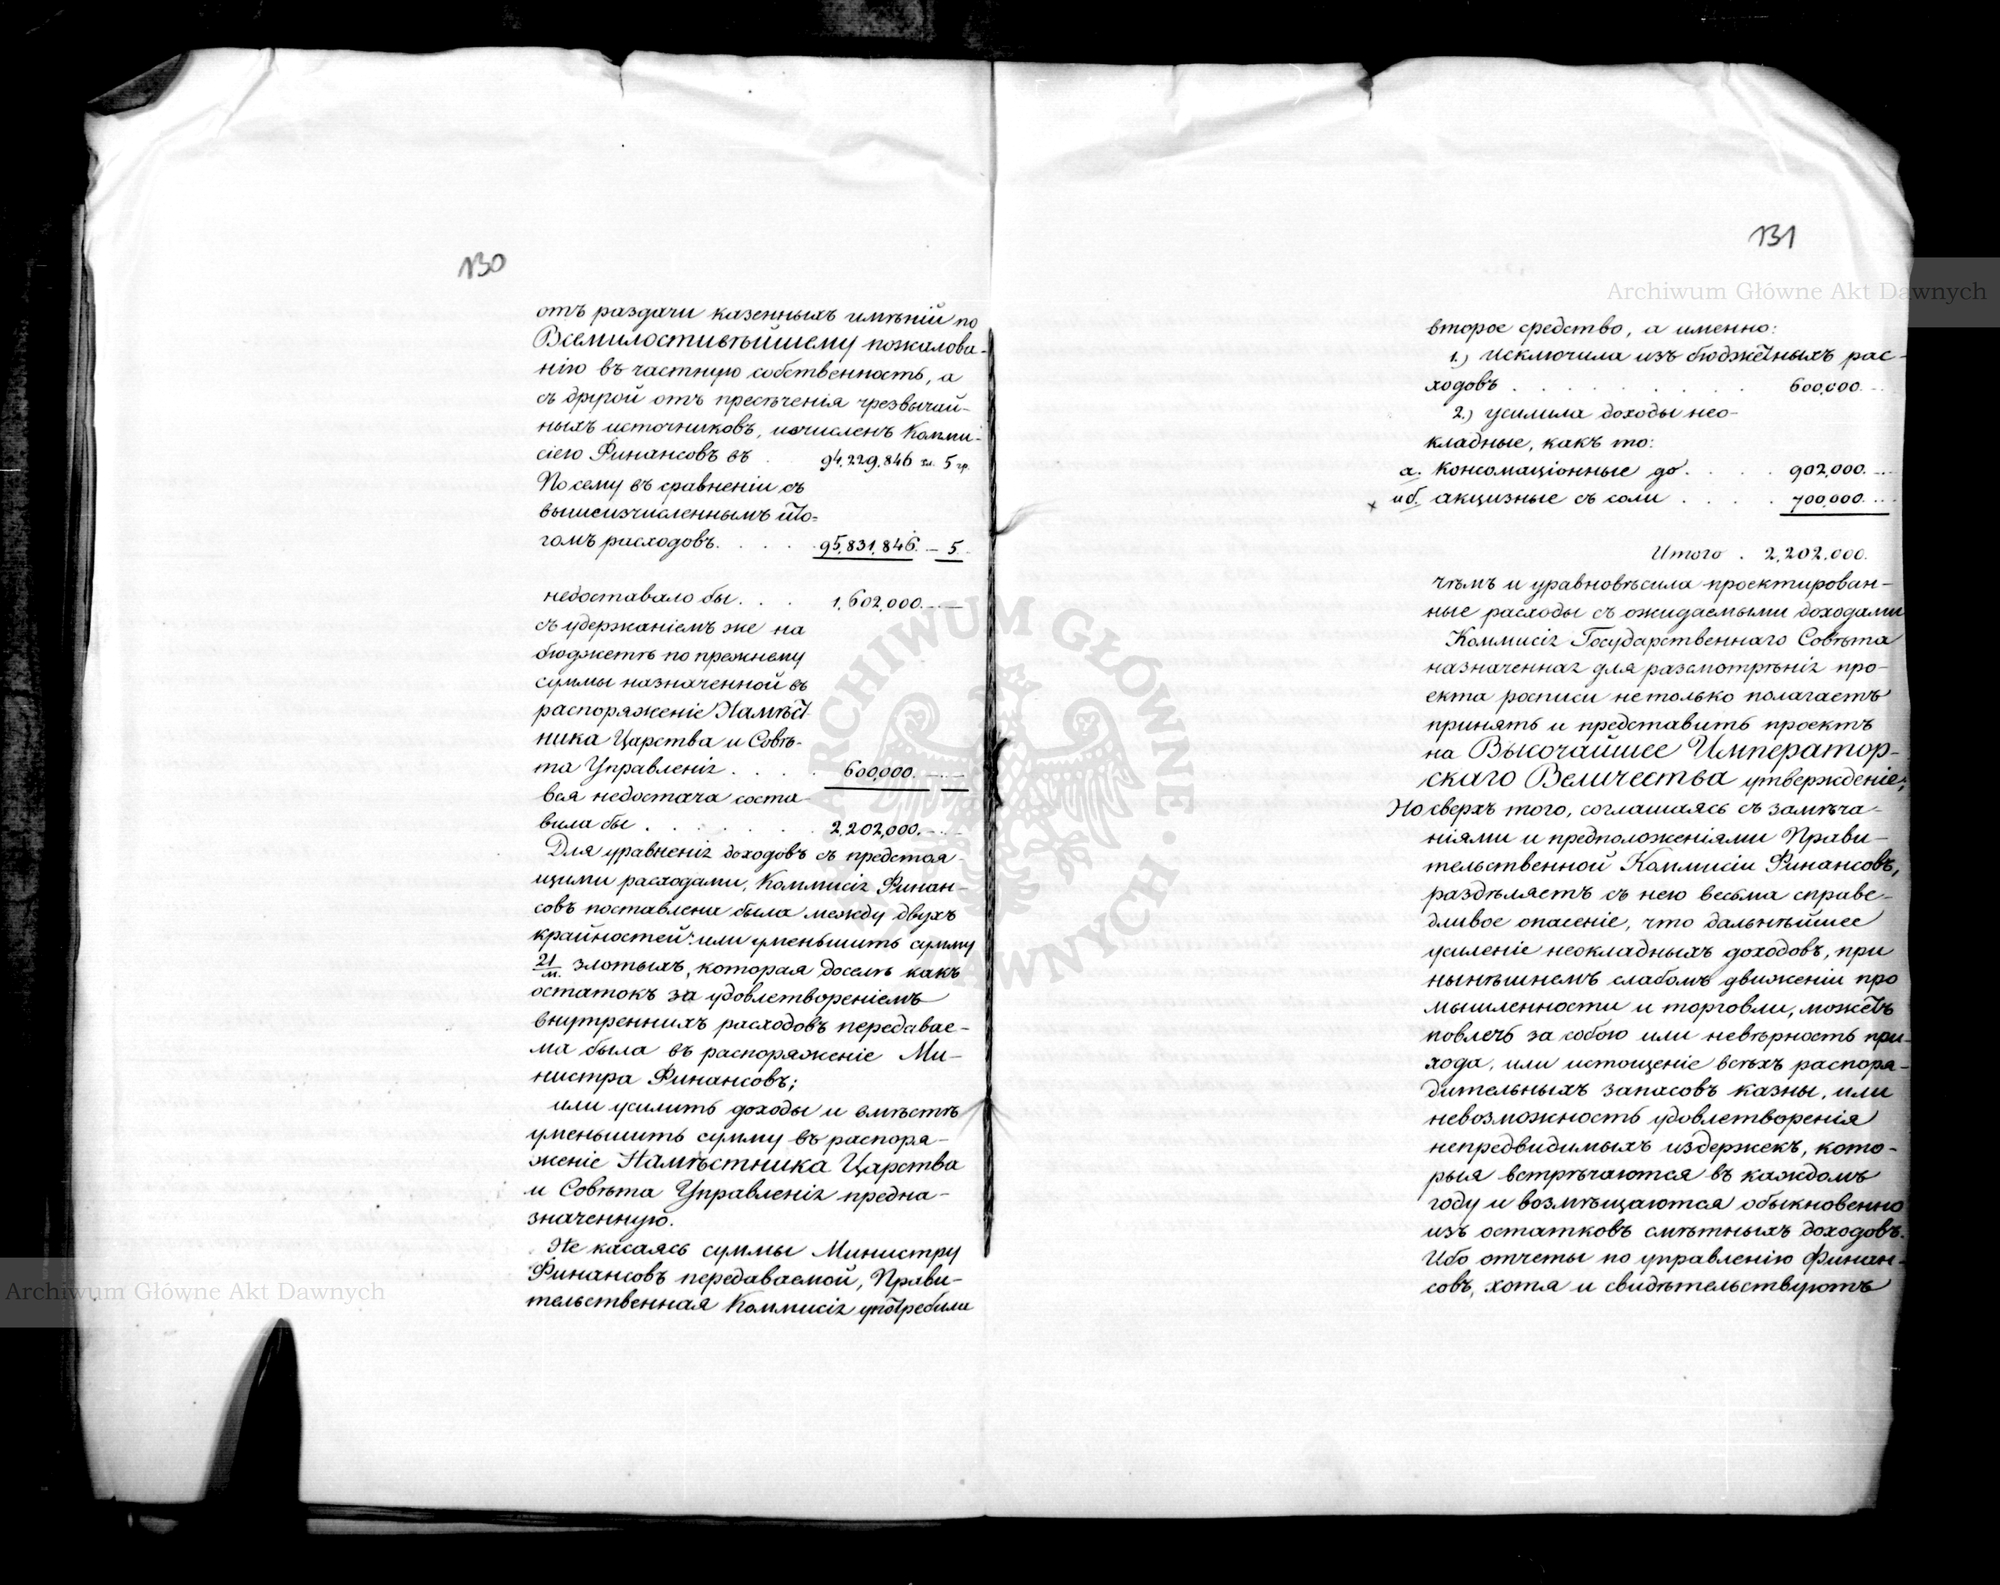 130
отъ раздачи казенныхъ имѣній по
Всемилостивѣйшему пожалова-
нію въ частную собственность, а
съ другой отъ пресѣченія чрезвычай-
ныхъ источниковъ, исчисленъ Комми-
сіею Финансовъ въ . 94,229,846 зл. 5 гр.
Посему въ сравненіи съ
вышеизчисленнымъ ито-
гомъ расходовъ. . . . 95,831,846. — 5.
недоставало бы. . . 1,602,000. — —
съ удержаніемъ же на
бюджетѣ по прежнему
суммы назначенной въ
распоряженіе Намѣст-
ника Царства и Совѣ-
та Управленія . . . . 600,000. — —
вся недостача соста-
вила бы . . . . . . 2,202,000. — —
Для уравненія доходовъ съ предстоя-
щими расходами, Коммисія Финан-
совъ поставлена была между двухъ
крайностей: или уменьшить сумму
21/м. злотыхъ, которая доселѣ какъ
остатокъ за удовлетвореніемъ
внутреннихъ расходовъ передавае-
ма была въ распоряженіе Ми-
нистра Финансовъ;
или усилить доходы и вмѣстѣ
уменьшить сумму въ распоря-
женіе Намѣстника Царства
и Совѣта Управленія предна-
значенную.
Не касаясь суммы Министру
Финансовъ передаваемой, Прави-
тельственная Коммисія употребила
131
второе средство, а именно:
1.) Исключила изъ бюджетныхъ рас-
ходовъ . . . . . . . 600,000. —
2.) усилила доходы нео-
кладные, какъ то:
а. Консомаціонные до . . . 902,000. —
х и б. акцизные съ соли . . . . 700,000. —
Итого . 2,202,000.
чѣмъ и уравновѣсила проектирован-
ные расходы съ ожидаемыми доходами
Коммисія Государственнаго Совѣта
назначенная для разсмотрѣнія про-
екта росписи не только полагаетъ
принять и представить проектъ
на Высочайшее Император-
скаго Величества утвержденіе;
Но сверхъ того, соглашаясь съ замѣча-
ніями и предположеніями Прави-
тельственной Коммисіи Финансовъ,
раздѣляетъ съ нею весьма справе-
дливое опасеніе, что дальнѣйшее
усиленіе неокладныхъ доходовъ, при
нынѣшнемъ слабомъ движеніи про
мышленности и торговли, можетъ
повлечь за собою или невѣрность при-
хода, или истощеніе всѣхъ распоря-
дительныхъ запасовъ казны, или
невозможность удовлетворенія
непредвидимыхъ издержекъ, кото-
рыя встрѣчаются въ каждомъ
году и возмѣщаются обыкновенно
изъ остатковъ смѣтныхъ доходовъ.
Ибо отчеты по управленію Финан-
совъ, хотя и свидѣтельствуютъ
Archiwum Główne Akt Dawnych
Archiwum Główne Akt Dawnych
ARCHIWUM GŁÓWNE · AKT DAWNYCH ·